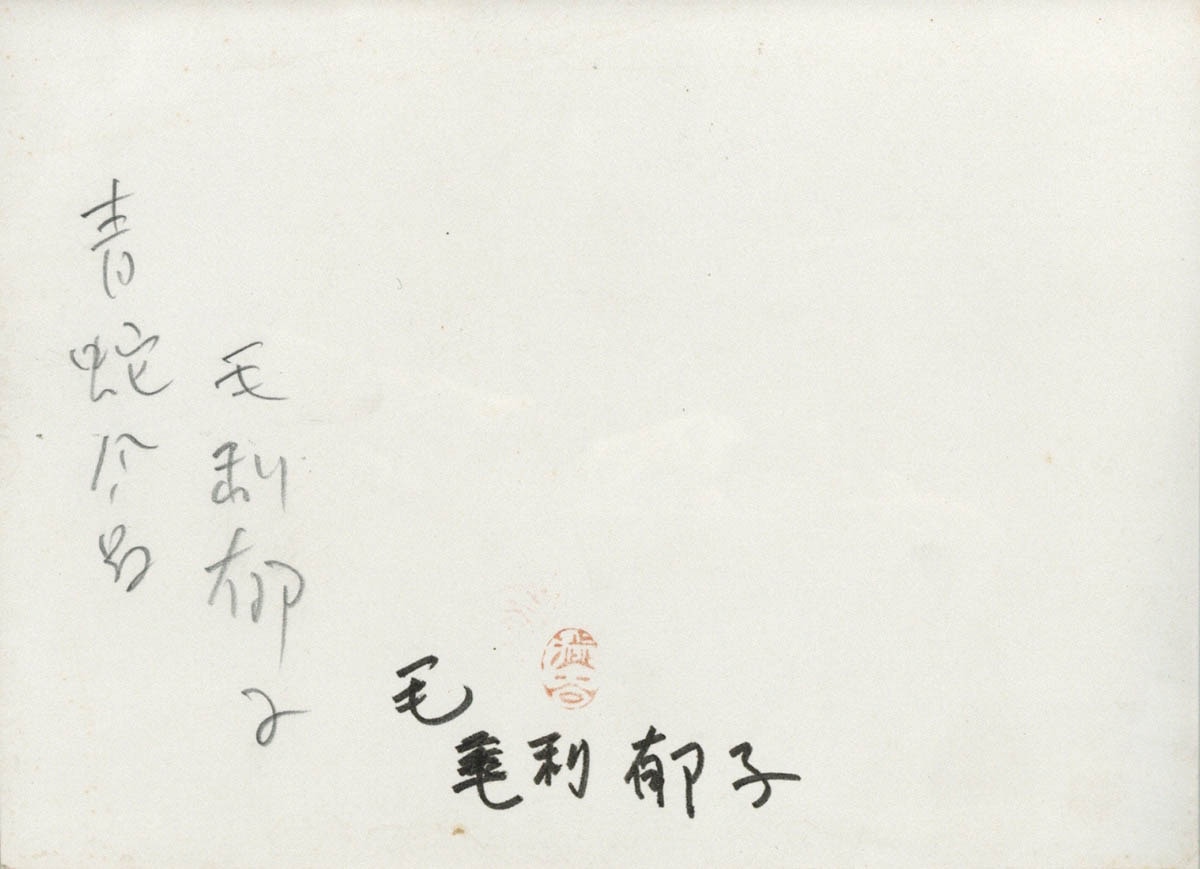 毛利郁子
青蛇風呂
澁谷
毛
毛利郁子